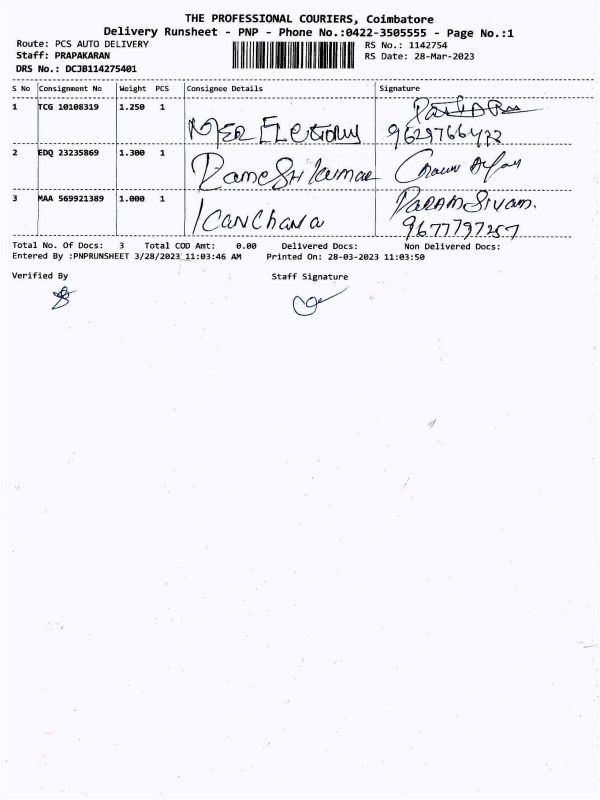 THE PROFESSIONAL COURIERS, Coimbatore
Delivery Runsheet - PNP - Phone No.:0422-3505555 - Page No.:1
Route: PCS AUTO DELIVERY RS No.: 1142754
Staff: PRAPAKARAN RS Date: 28-Mar-2023
DRS No.: DCJB114275401
S No Consignment No Weight PCS Consignee Details Signature
1 TCG 10108319 1.250 1
9629766472
2 EDQ 23235869 1.300 1 Ramesh kumar
3 MAA 569921389 1.000 1 Kanchana PARAMSIVAM.
9677797257
Total No. Of Docs: 3 Total COD Amt: 0.00 Delivered Docs: Non Delivered Docs:
Entered By :PNPRUNSHEET 3/28/2023 11:03:46 AM Printed On: 28-03-2023 11:03:50
Verified By Staff Signature